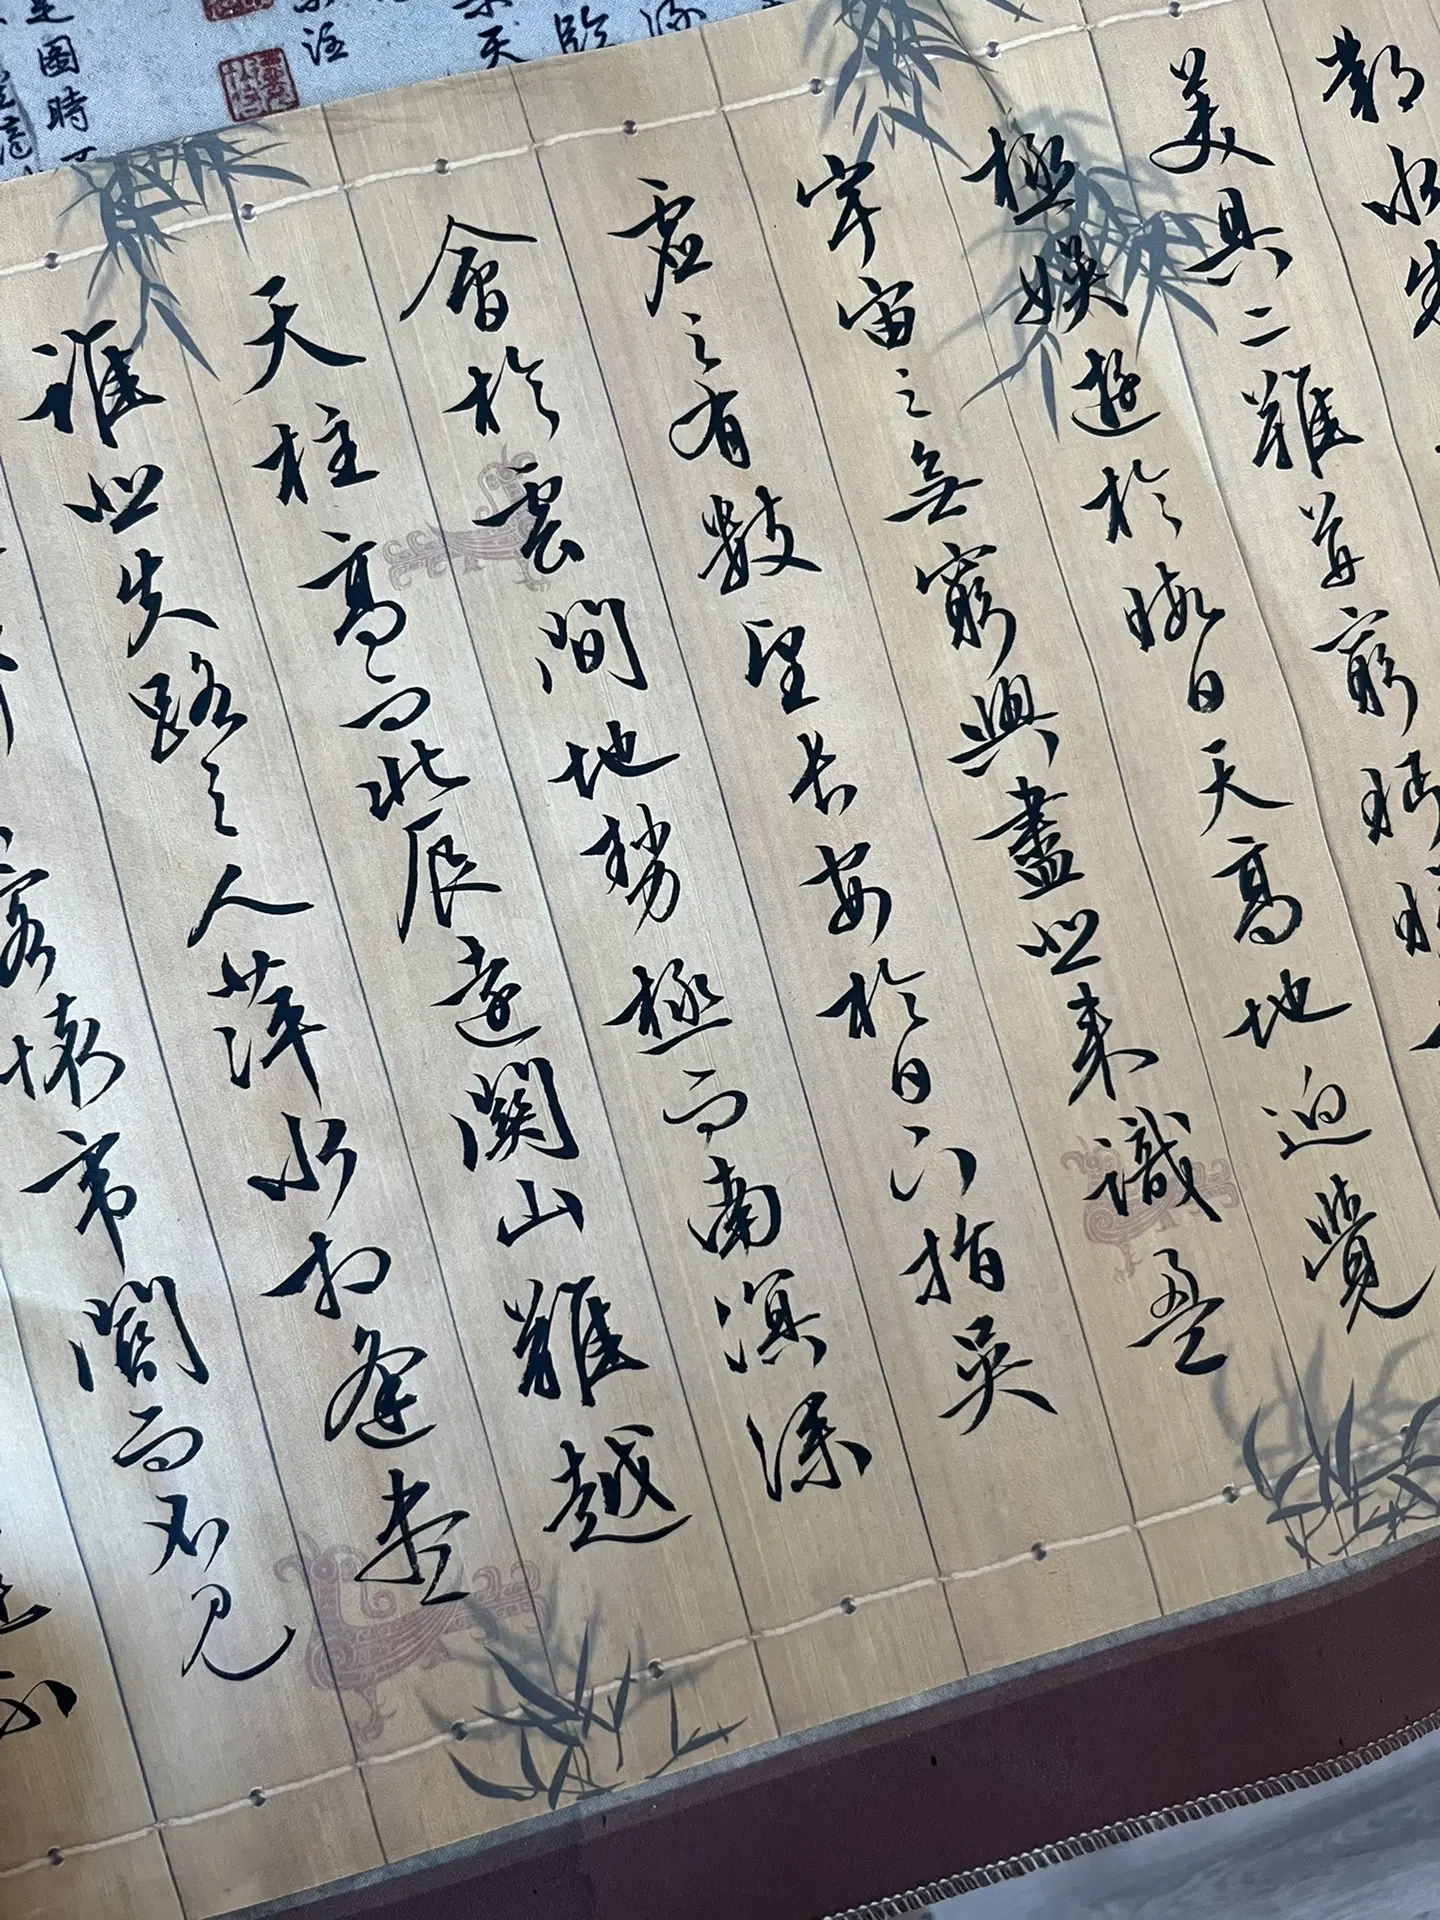 鄴水朱
美具二難并窮睇眄
極娛遊於暇日天高地迥覺
宇宙之無窮興盡悲來識盈
虛之有數望長安於日下指吳
會於雲間地勢極而南溟深
天柱高而北辰遠關山難越
誰悲失路之人萍水相逢盡
客懷帝閽而不見
天
圖時